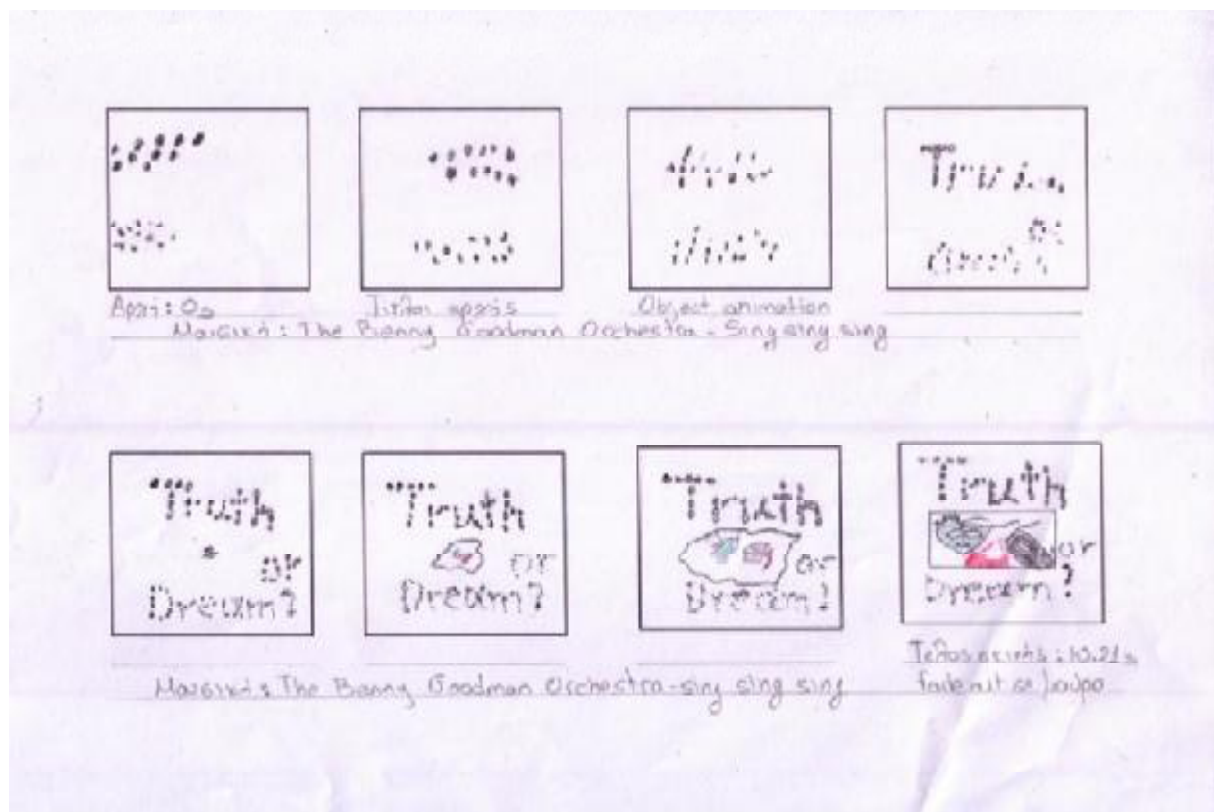 Αρχή: 0s
Τίτλοι αρχής
Object animation
Μουσική: The Benny Goodman Orchestra - Sing sing sing
Truth
or
Dream?
Truth
or
Dream?
Truth
or
Dream?
Truth
or
Dream?
Τέλος σκηνής: 10.21s
fade out σε μαύρο
Μουσική: The Benny Goodman Orchestra - sing sing sing